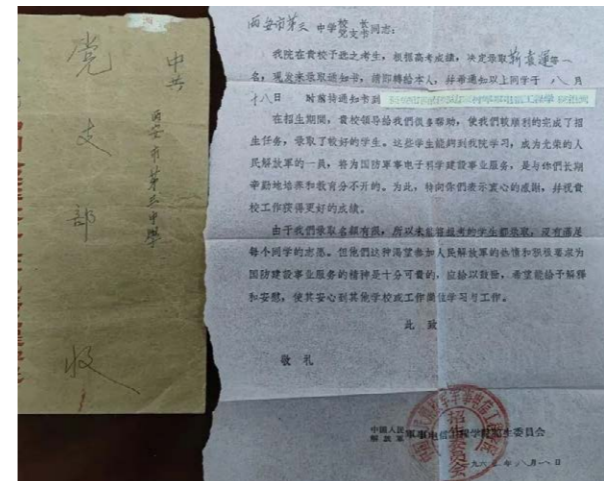 中共
西安市第三中學
党支部
收
西安市第三中学校长
党支书同志:
我院在贵校予选之考生,根据高考成績,决定录取
名,現发来录取通知书,請即轉給本人,并希通知以上同学于 八 月
十八日 时前持通知书到
在招生期間,貴校領导给我們很多帮助,使我們順利的完成了招
生任务,录取了較好的学生。这些学生能够到我院学习,成为光荣的人
民解放軍的一員,将为国防軍事电子科学建設事业服务,是与你們长期
辛勤地培养和教育分不开的。为此,特向你們表示衷心的感謝,并祝貴
校工作获得更好的成績。
由于我們录取名額有限,所以未能将报考的学生都录取,没有满足
每个同学的志愿。但他們这种渴望参加人民解放軍的热情和积极要求为
国防建設事业服务的精神是十分可貴的,应給以鼓励,希望能给予解釋
和安慰,使其安心到其他学校或工作崗位学习与工作。
此 致
敬 礼
中國人民
解放軍軍事电信工程学院招生委員会
一九六 年八月 日